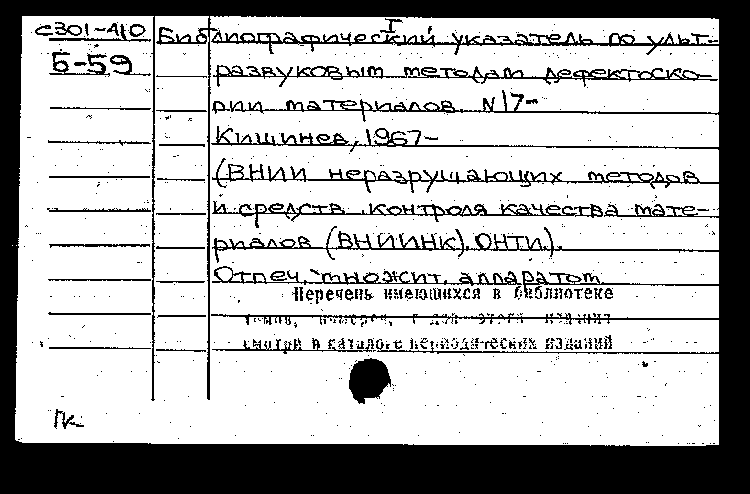 I
С301-410 Библиографический указатель по ульт-
Б-59 развуковым методам дефектоско-
пии материалов. N 17-
Кишинев, 1967-
(ВНИИ неразрушающих методов
и средств контроля качества мате-
риалов (ВНИИНК). ОНТИ.).
Отпеч. множит. аппаратом
Перечень имеющихся в библиотеке
томов, номеров, г для этого издания
смотри в каталоге периодических изданий